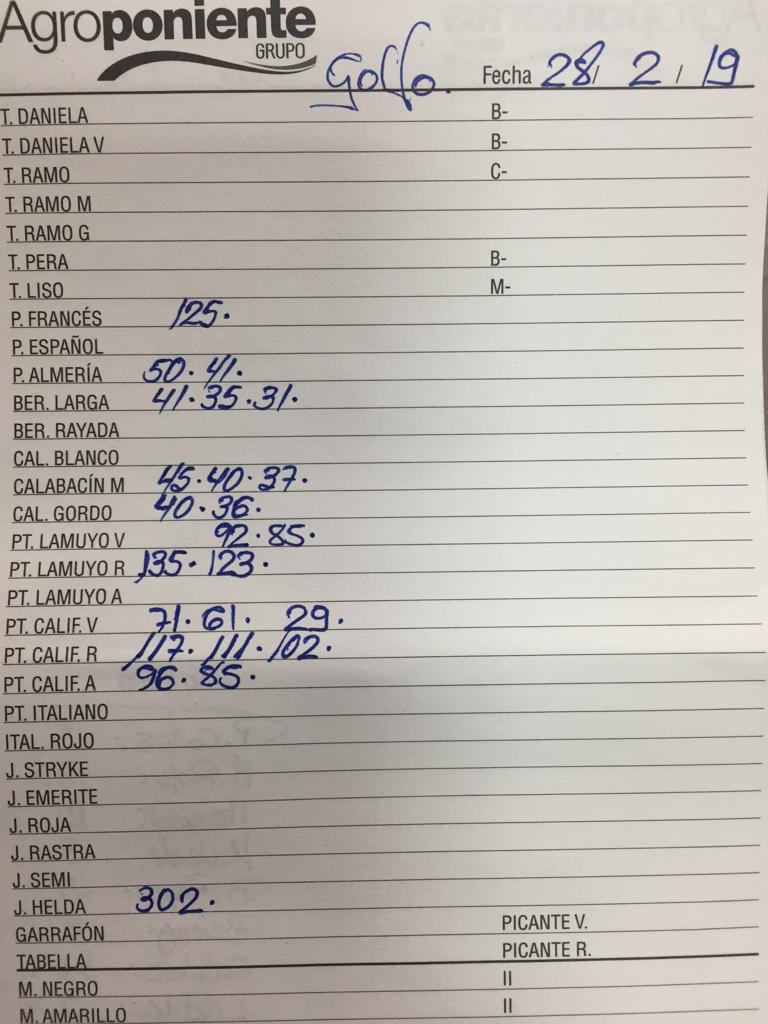 Agroponiente
GRUPO
Golfo. Fecha 28/ 2 / 19
T. DANIELA B-
T. DANIELA V B-
T. RAMO C-
T. RAMO M
T. RAMO G
T. PERA B-
T. LISO M-
P. FRANCÉS 125.
P. ESPAÑOL
P. ALMERÍA 50. 41.
BER. LARGA 41. 35. 31.
BER. RAYADA
CAL. BLANCO
CALABACÍN M 45. 40. 37.
CAL. GORDO 40. 36.
PT. LAMUYO V 92. 85.
PT. LAMUYO R 135. 123.
PT. LAMUYO A
PT. CALIF. V 71. 61. 29.
PT. CALIF. R 117. 111. 102.
PT. CALIF. A 96. 85.
PT. ITALIANO
ITAL. ROJO
J. STRYKE
J. EMERITE
J. ROJA
J. RASTRA
J. SEMI
J. HELDA 302.
GARRAFÓN PICANTE V.
TABELLA PICANTE R.
M. NEGRO II
M. AMARILLO II